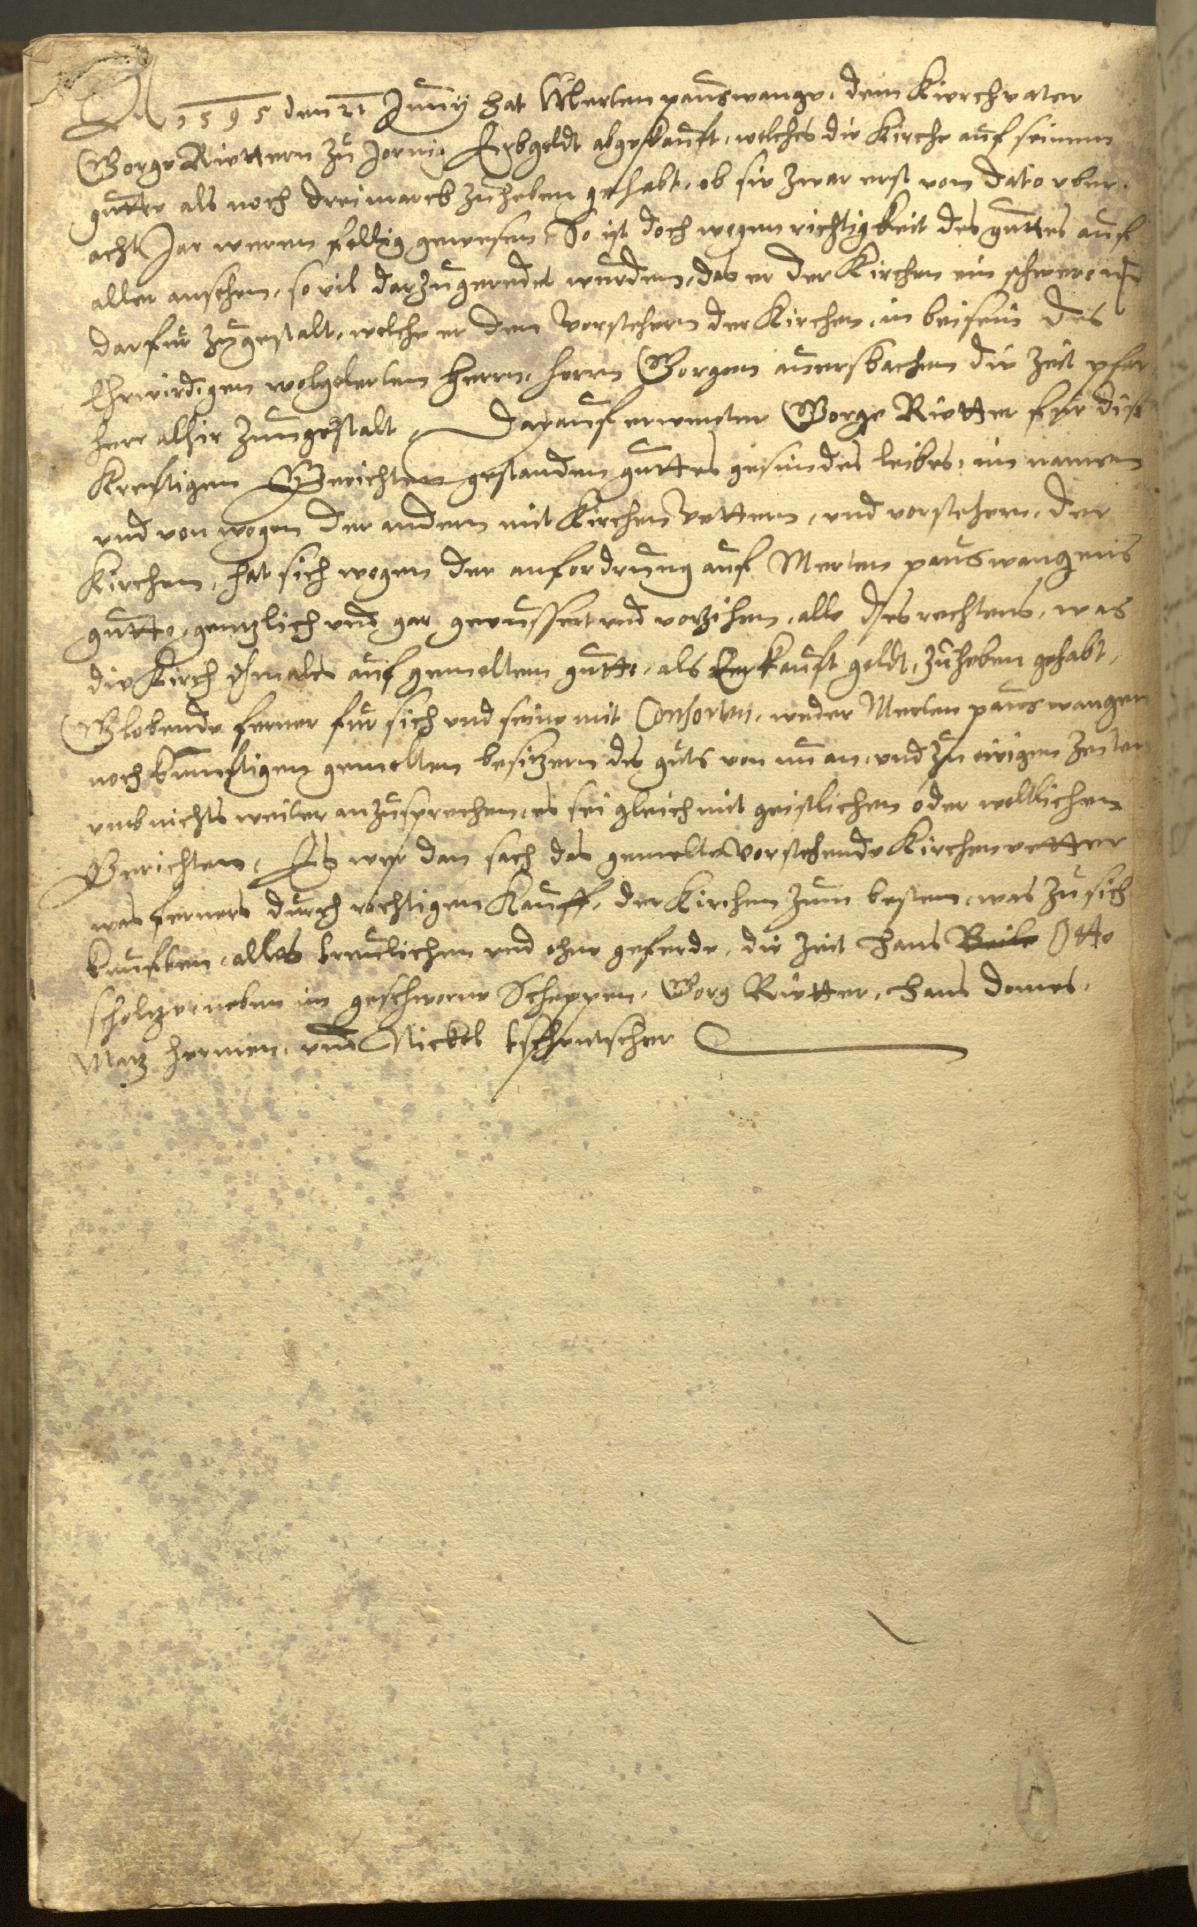 A 1595 den 21 Junij hat Merten pauswange, dem Kirchvater
George Riettern zu Jernig Erbgeldt abgekauft, welches die Kirche auf seinem
gutte als noch drei marck zuheben gehabt, ob sie zwar erst von dato vber
acht Jar weren fellig gewesen, So ist doch wegen richtigkeit des guttes auf
aller ansehen, so vil darzugeredet wurden, das er der Kirchen ein schwere mk
darfur zugestalt, welche er den vorstehern der Kirchen, in beisein des
Ehrwirdigen wolgelerten herrn, herrn Gorgen auersbachen die zeit pfar
herr alhir zuungestalt, Darauf erwenter George Rietter fur dise
kreftigen Gerichten gestanden guttes gesundes leibes, im namen
vnd von wegen der andern mit Kirchen vettern, vnd vorstehern, der
Kirchen, hat sich wegen der anfordrung auf Merten pauswangens
gutte, gentzlich vnd gar geeussert vnd vorzihen, alle des rechtens, was
die Kirch ehmales auf gemeltem gutte, als Erbkauft geldt, zuheben gehabt,
Globende ferner fur sich vnd seine mit Consorten, weder Merten pauswangen
noch kunftigen gemelten besitzern des guts von nu an, vnd zu ewigen zeiten
vmb nichts weiter anzusprechen, es sei gleich mit geistlichen oder weltlichen
Gerichten, Es wer dan sach das gemelte vorstehende Kirchenvetter
was ferners durch rechtigen Kauff, der Kirchen zum besten, was zu sich
kauften, alles treulichen vnd ohne geferde, die zeit Hans Beile Otto
scholtze neben im geschworne Scheppen, Gorg Rietter, Hans Domes,
Matz herman, vnd Nickel tschentscher